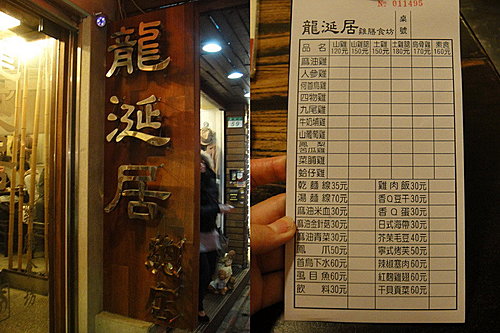 龍
涎
居
№ 011495
龍涎居雞膳食坊
桌號
品名 山雞120元 山雞腿150元 土雞150元 土雞腿180元 烏骨雞170元 素食160元
麻油雞
人參雞
何首烏雞
四物雞
九尾雞
牛奶埔雞
山葡萄雞
菜脯雞
蛤仔雞
乾麵線35元 雞肉飯30元
湯麵線70元 香Q豆干30元
麻油米血30元 香Q蛋30元
麻油金針菇30元 日式海帶30元
麻油青菜30元 芥茉毛豆40元
鳳爪50元 寧式烤芙50元
首烏下水60元 辣椒塞肉50元
虱目魚60元 紅麴雞翅60元
飲料30元 干貝貢菜60元